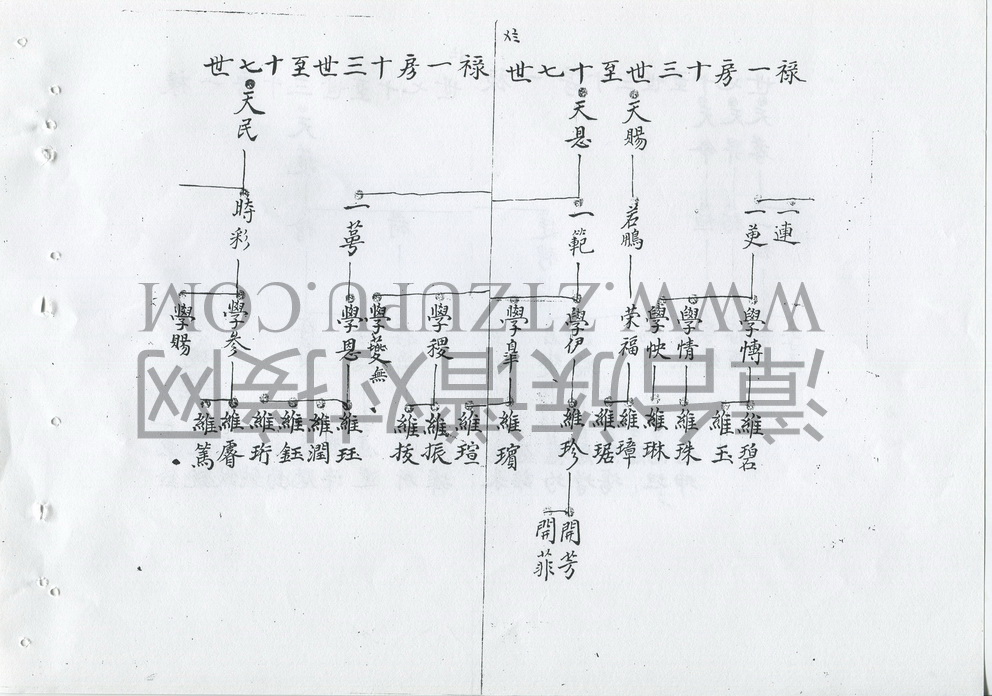 祿一房十三世至十七世
天賜
天恩
一連
一英
若鵬
一範
學博
學情
學快
荣福
學伊
學皐
維碧
維玉
維珠
維琳
維璋
維琚
維珍
維璸
維瑄
開芳
開菲
祿一房十三世至十七世
天民
一萼
時彩
學稷
學夔無
學恩
學参
學賜
維振
維技
維珏
維潤
維鈺
維珩
維睿
維篤
WWW.ZTZUPU.COM
漳台族譜对接网